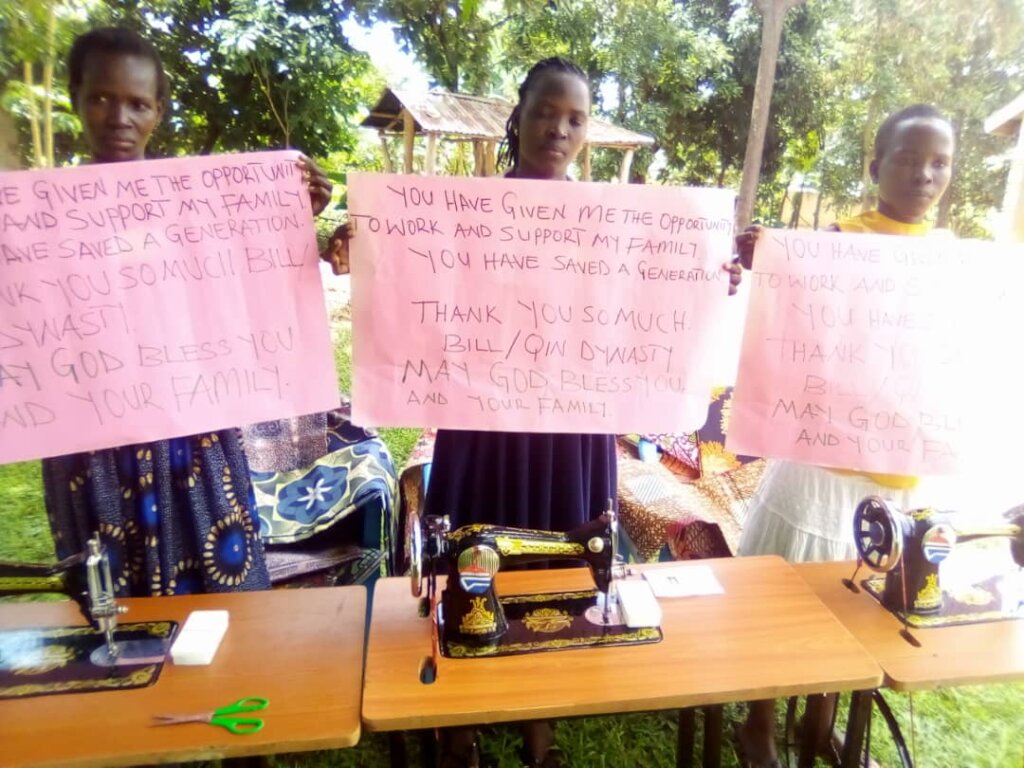 GIVEN ME THE OPPORTUNIT
AND SUPPORT MY FAMILY
SAVED A GENERATION.
YOU SO MUCH BILL/
DYNASTY
GOD BLESS YOU
YOUR FAMILY.
YOU HAVE GIVEN ME THE OPPORTUNITY
TO WORK AND SUPPORT MY FAMILY.
YOU HAVE SAVED A GENERATION
THANK YOU SO MUCH.
BILL/QIN DYNASTY
MAY GOD BLESS YOU
AND YOUR FAMILY.
YOU HAVE
TO WORK AND
YOU HAVE
THANK
BILL/
MAY GOD
AND YOUR